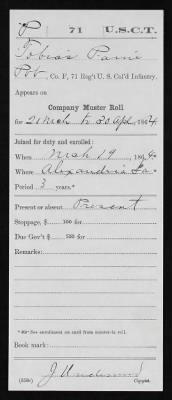 P 71 U.S.C.T.
Tobias Paine
Pvt, Co. F, 71 Reg't U. S. Col'd Infantry.
Appears on
Company Muster Roll
for 21 Mch to 30 Apl, 1864
Joined for duty and enrolled:
When Mch 19, 1864
Where Alexandria La
Period 3 years.*
Present or absent Present
Stoppage, $ 100 for
Due Gov't $ 100 for
Remarks:
*See enrollment on card from muster-in roll.
Book mark:
J Underwood
(358c) Copyist.